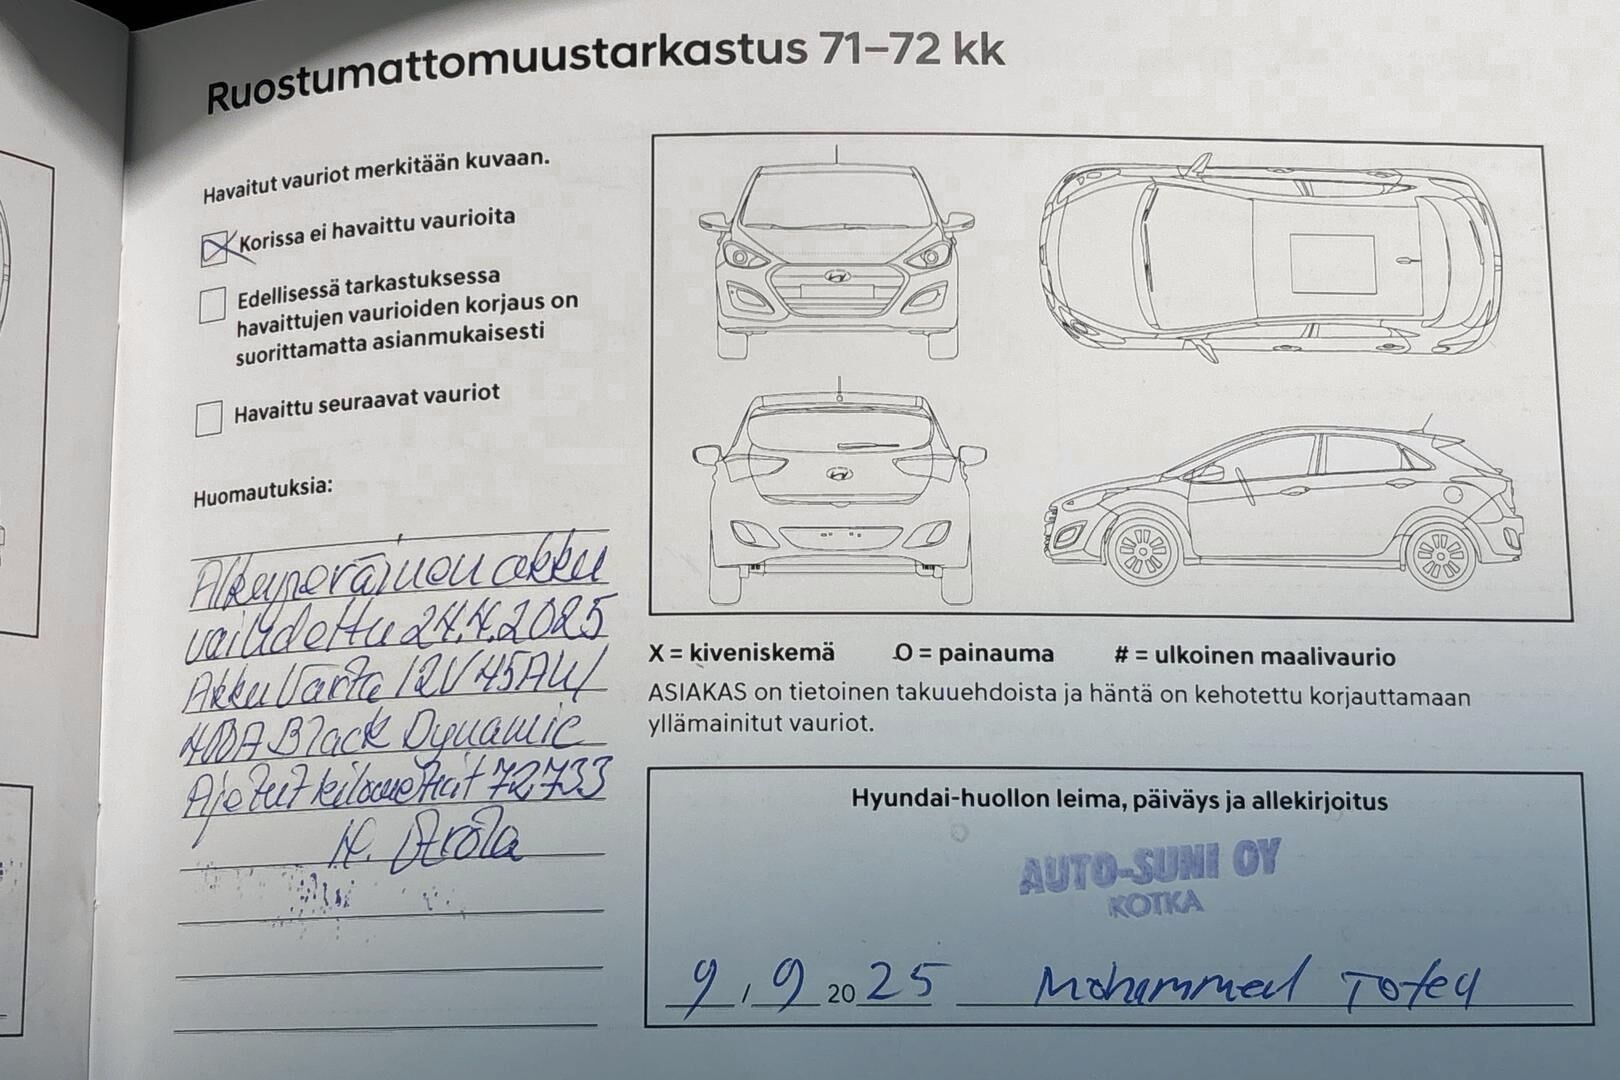 Ruostumattomuustarkastus 71–72 kk
Havaitut vauriot merkitään kuvaan.
Korissa ei havaittu vaurioita
Edellisessä tarkastuksessa
havaittujen vaurioiden korjaus on
suorittamatta asianmukaisesti
Havaittu seuraavat vauriot
Huomautuksia:
Alkuperäinen akku
vaihdettu 24.4.2025
Akku Varta 12V 45AH/
400A Black Dynamic
Ajetut kilometrit 72.733
X = kiveniskemä
O = painauma
# = ulkoinen maalivaurio
ASIAKAS on tietoinen takuuehdoista ja häntä on kehotettu korjauttamaan
yllämainitut vauriot.
Hyundai-huollon leima, päiväys ja allekirjoitus
AUTO-SUNI OY
KOTKA
9 / 9 2025 Mohammed